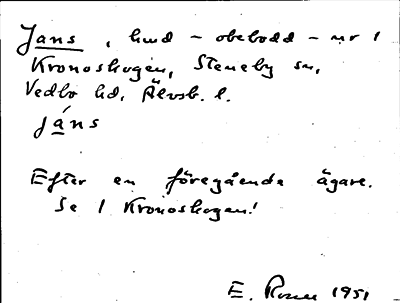 Jans, hmd - obebodd - nr 1
Kronoskogen, Steneby sn,
Vedbo hd, Älvsb. l.
jáns
Efter en föregående ägare.
Se 1 Kronoskogen!
E. 1951